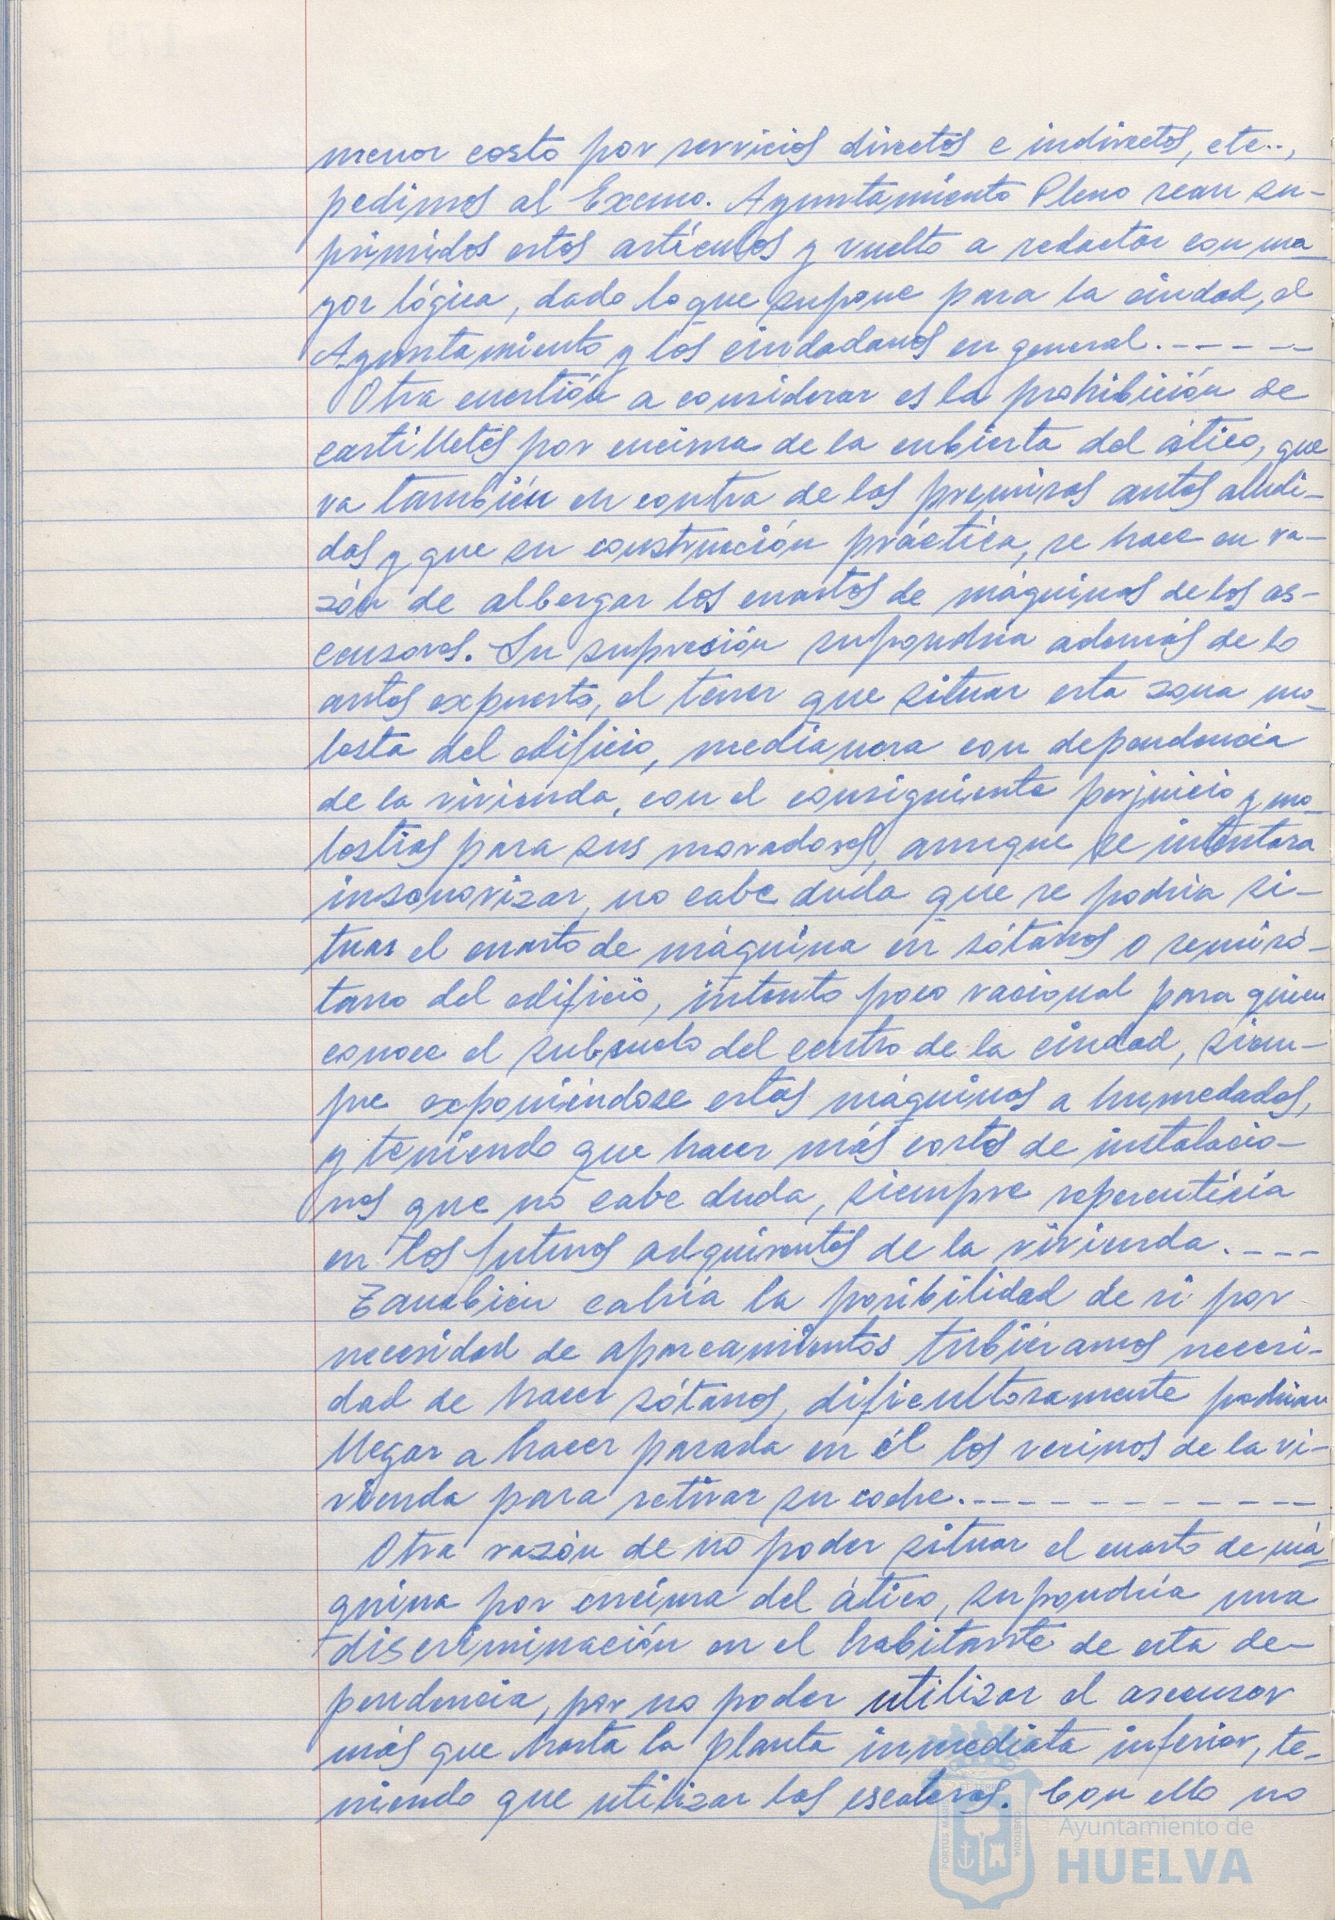 menor costo por servicios directos e indirectos, etc..,
pedimos al Excmo. Ayuntamiento Pleno sean su-
primidos estos artículos y vuelto a redactar con ma
yor lógica, dado lo que supone para la ciudad, el
Ayuntamiento y los ciudadanos en general.-----
Otra cuestión a considerar es la prohibición de
castilletes por encima de la cubierta del ático, que
va también en contra de las premisas antes aludi-
das y que su construcción práctica, se hace en ra-
zón de albergar los cuartos de máquinas de los as-
censores. Su supresión supondría además de lo
antes expuesto, el tener que situar esta zona mo-
lesta del edificio, medianera con dependencia
de la vivienda, con el consiguiente perjuicio y mo-
lestias para sus moradores, aunque se intentara
insonorizar, no cabe duda que se podría si-
tuar el cuarto de máquina en sótanos o semisó-
tano del edificio, intento poco racional para quien
conoce el subsuelo del centro de la ciudad, siem-
pre exponiéndose estas máquinas a humedades,
y teniendo que hacer más costos de instalacio-
nes que no cabe duda, siempre repercutiría
en los futuros adquirentes de la vivienda.----
Tambien cabría la posibilidad de si por
necesidad de aparcamientos tubiéramos necesi-
dad de hacer sótanos, dificultosamente podrían
llegar a hacer parada en él los vecinos de la vi-
vienda para retirar su coche.------------
Otra razón de no poder situar el cuarto de má-
quina por encima del ático, supondría una
discriminación en el habitante de esta de-
pendencia, por no poder utilizar el ascensor
más que hasta la planta inmediata inferior, te-
niendo que utilizar las escaleras. Con ello no
Ayuntamiento de
HUELVA